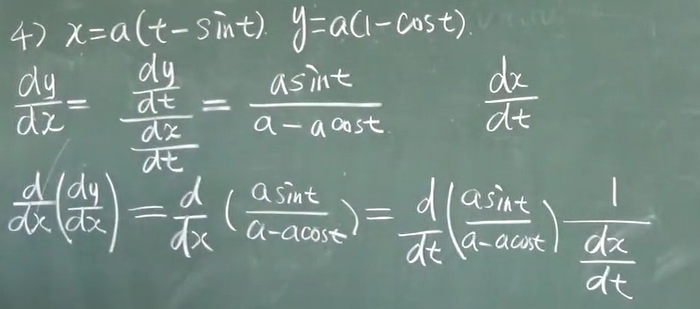 4) x=a(t-sint). y=a(1-cost).
dy/dx = (dy/dt)/(dx/dt) = asint/(a-acost) dx/dt
d/dx(dy/dx) = d/dx(asint/(a-acost)) = d/dt(asint/(a-acost)) 1/(dx/dt)